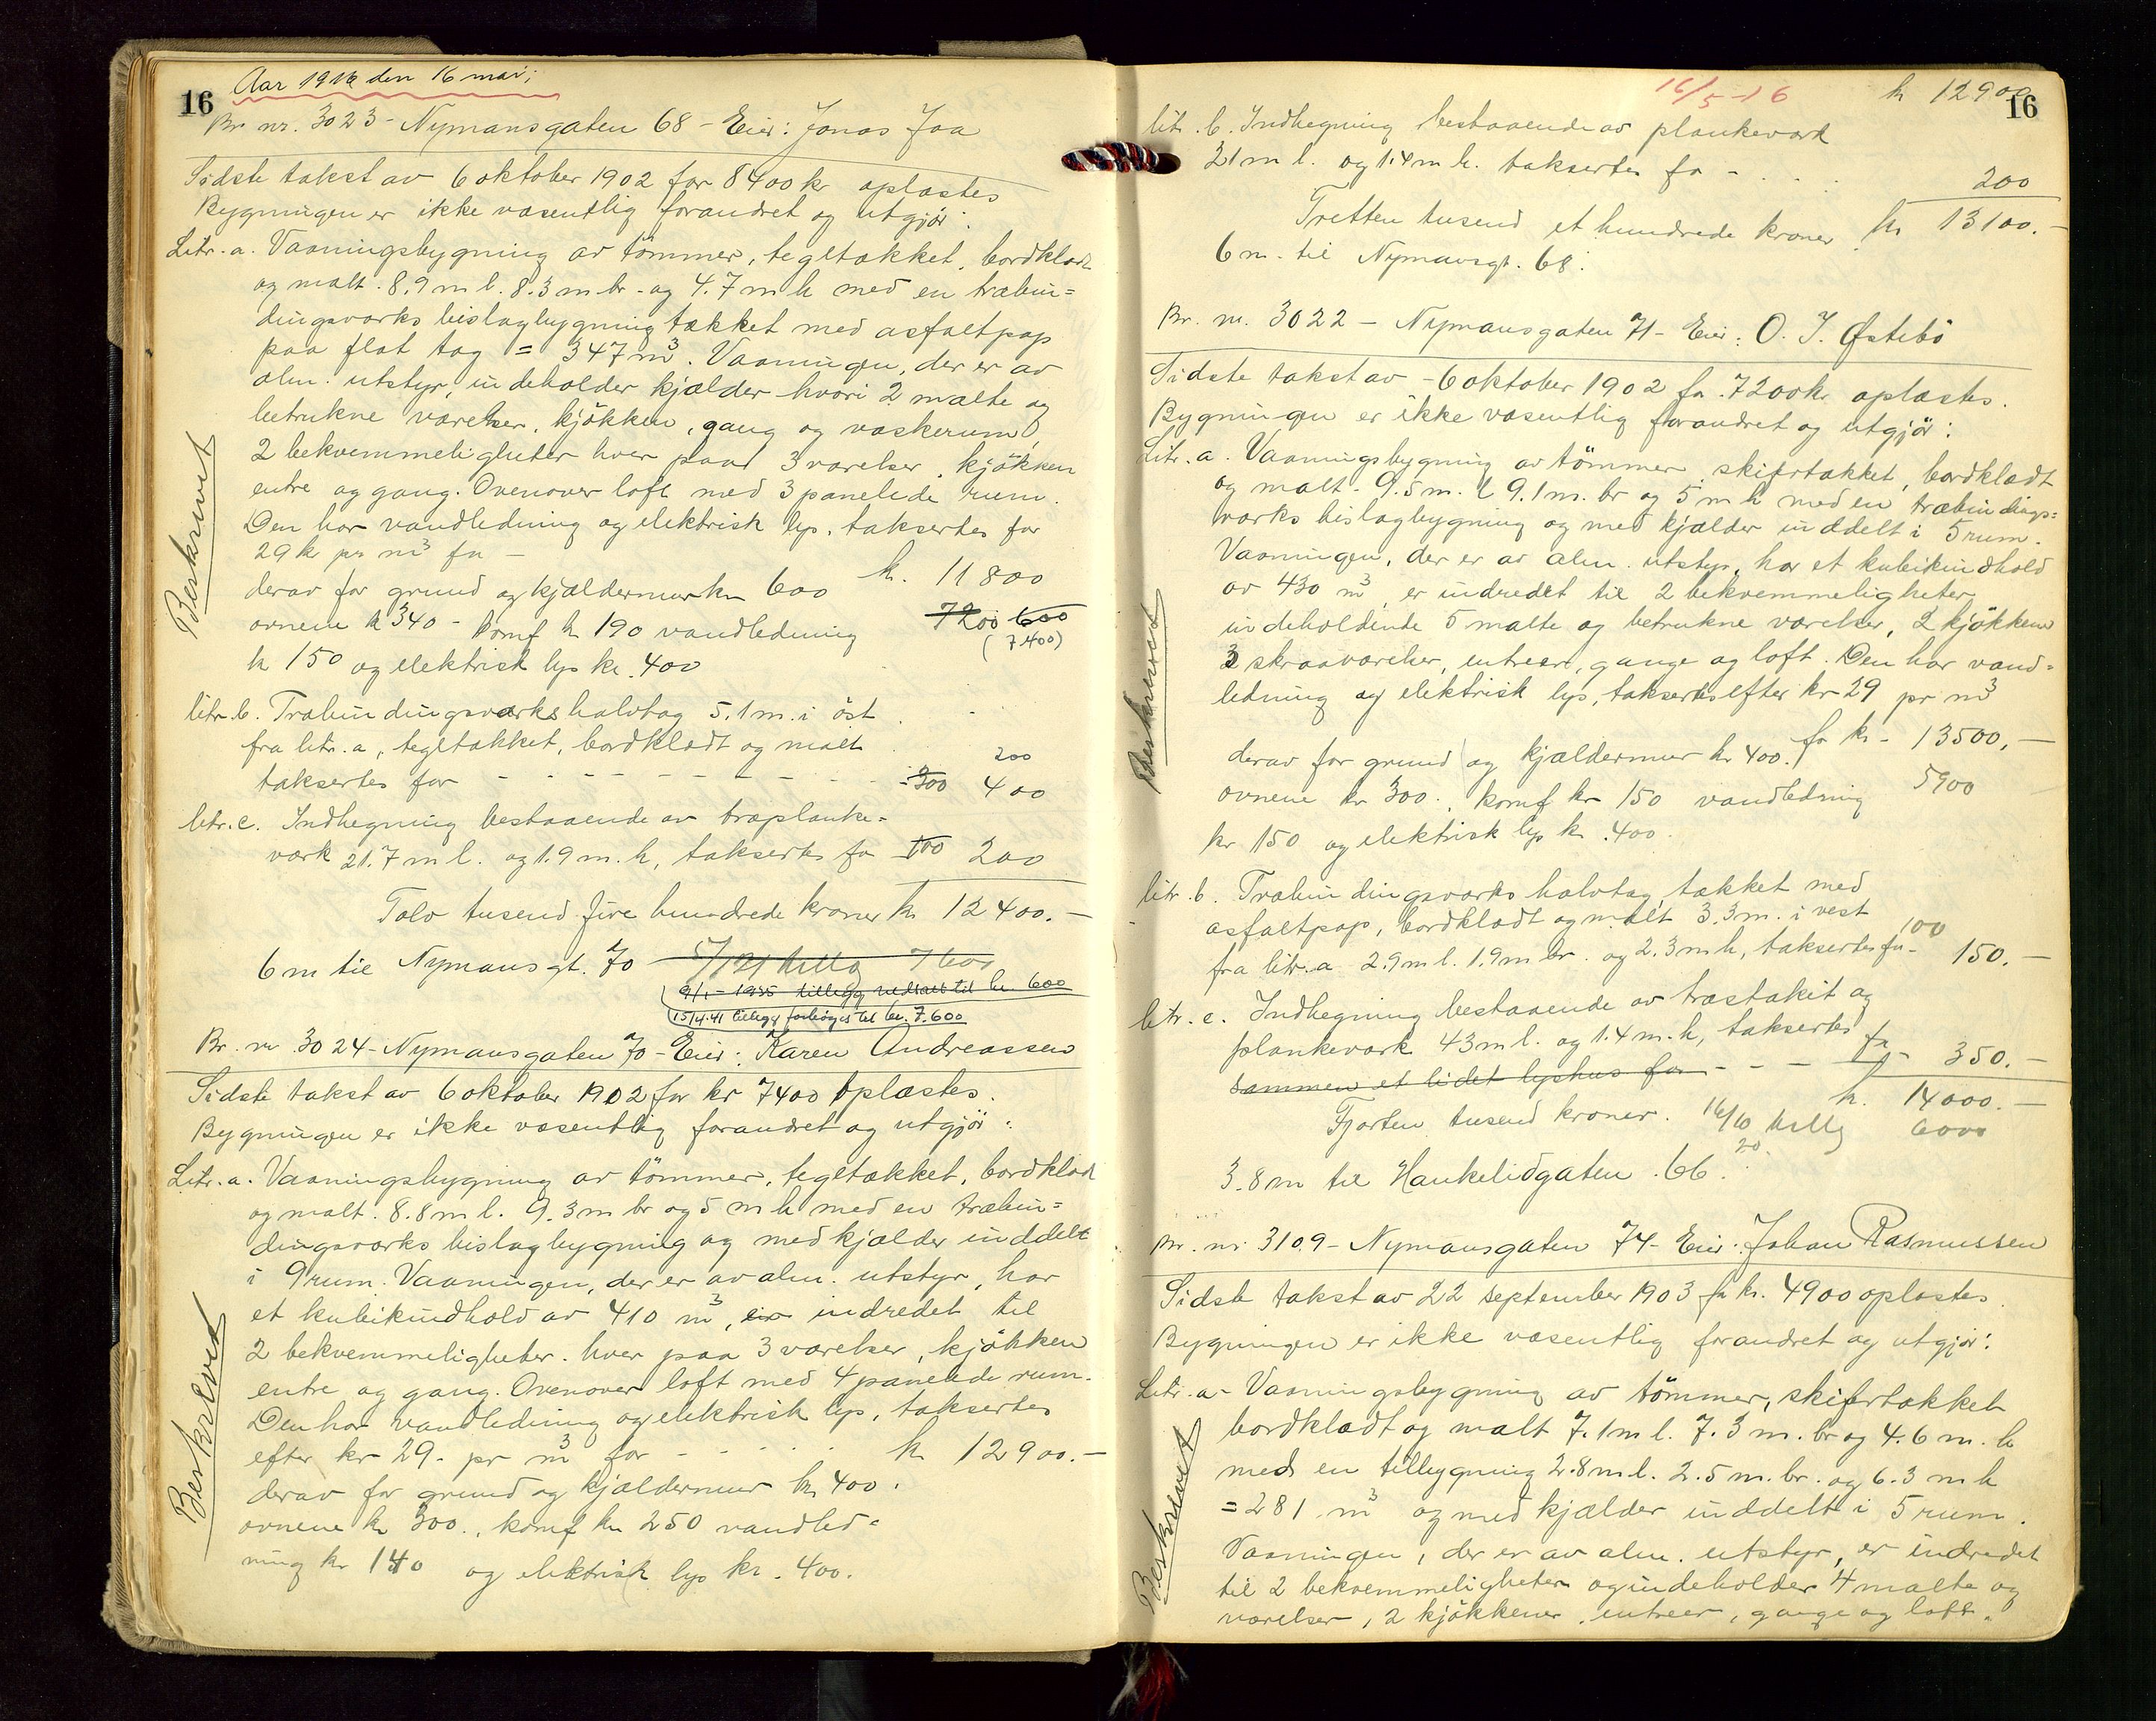 16
Aar 1916 den 16 mai;
Br nr. 3023 - Nymansgaten 68 - Eier: Jonas Faa
Sidste takst av 6 oktober 1902 for 8400 kr oplæstes
Bygningen er ikke væsentlig forandret og utgjör:
Litr. a. Vaaningsbygning av tömmer, tegltækket, bordklædt
og malt. 8.9 m l. 8.3 m br. og 4.7 m h med en træbin=
dingsværks bislagbygning tækket med asfaltpap
paa flat tag = 347 m³. Vaaningen, der er av
alm. utstyr, indeholder kjælder hvori 2 malte og
betrukne værelser, kjökken, gang og vaskerum,
2 bekvemmeligheter hver paa 3 værelser, kjökken
entre og gang. Ovenover loft med 3 panelede rum.
Den har vandledning og elektrisk lys, taksertes for
29 kr pr m³ for -
kr. 11800
derav for grund og kjældermur kr 600
7200 600
ovnene kr 340 - komf kr 190 vandledning
(7400)
kr 150 og elektrisk lys kr. 400
litr. b. Træbindingsværks halvtag 5.1 m. i öst
fra litr. a, tegltækket, bordklædt og malt
200
taksertes for - - - - - - - - - 300 400
litr. c. Indhegning bestaaende av træplanke=
værk 21.7 m l. og 1.9 m. h, taksertes for 100 200
Tolv tusend fire hundrede kroner kr 12400.-
6 m til Nymansgt. 70 5/1 21 tillæg 7600
9/1 - 1935 tillegg nedsatt til kr. 600
15/4.41 tillegg forhöyes til kr. 7.600
Br. nr 3024 - Nymansgaten 70 - Eier: Karen Andreassen
Sidste takst av 6 oktober 1902 for kr 7400 oplæstes.
Bygningen er ikke væsentlig forandret og utgjör:
Litr. a. Vaaningsbygning av tömmer, tegltækket, bordklædt
og malt. 8.8 m l. 9.3 m br og 5 m h med en træbin=
dingsværks bislagbygning og med kjælder inddelt
i 9 rum. Vaaningen, der er av alm. utstyr, har
et kubikindhold av 410 m³, er indredet til
2 bekvemmeligheter. hver paa 3 værelser, kjökken
entre og gang. Ovenover loft med 4 panelede rum.
Den har vandledning og elektrisk lys, taksertes
efter kr 29.- pr m³ for - - - - - kr 12900.-
derav for grund og kjældermur kr 400.
ovnene kr 300., komf kr 250 vandled=
ning kr 140 og elektrisk lys kr. 400.
Beskrevet
Beskrevet
16/5-16
kr 12900
16
litr. b. Indhegning bestaaende av plankeværk
21 m l. og 1.4 m h. taksertes for - . . .
200
Tretten tusend et hundrede kroner kr 13100.-
6 m. til Nymansgt. 68.
Br. nr. 3022 - Nymansgaten 71 - Eier: O. J. Østebö
Sidste takst av - 6 oktober 1902 for 7200 kr oplæstes.
Bygningen er ikke væsentlig forandret og utgjör:
Litr. a. Vaaningsbygning av tömmer, skifertækket, bordklædt
og malt - 9.5 m. l 9.1 m. br og 5 m h med en træbindings=
værks bislagbygning og med kjælder inddelt i 5 rum.
Vaaningen, der er av alm. utstyr, har et kubikindhold
av 430 m³, er indredet til 2 bekvemmeligheter
indeholdende 5 malte og betrukne værelser, 2 kjökkener
3 skraaværelser, entreer, gange og loft. Den har vand=
ledning og elektrisk lys, taksertes efter kr 29 pr m³
for kr - 13500,-
derav for grund og kjældermur kr 400.
5900
ovnene kr 300., komf kr 150 vandledning
kr 150 og elektrisk lys kr. 400.
litr. b. Træbindingsværks halvtag, tækket med
asfaltpap, bordklædt og malt 3.3 m. i vest
100
fra litr. a 2.9 m l. 1.9 m br. og 2.3 m h, taksertes for - 150.-
litr. c. Indhegning bestaaende av træstakit og
plankeværk 43 m l. og 1.4 m. h, taksertes
for - 350.-
sammen et lidet lyshus for - - -
kr. 14000.-
Fjorten tusend kroner. 16/10 20 tillæg 6000
3.8 m til Haukelidgaten 66.
Br. nr 3109 - Nymansgaten 74 - Eier: Johan Rasmussen
Sidste takst av 22 september 1903 for kr. 4900 oplæstes
Bygningen er ikke væsentlig forandret og utgjör:
Litr. a - Vaaningsbygning av tömmer, skifertækket
bordklædt og malt 7.1 m l. 7.3 m. br og 4.6 m. h
med en tilbygning 2.8 m l. 2.5 m. br. og 6.3 m h
= 281 m³ og med kjælder inddelt i 5 rum.
Vaaningen, der er av alm. utstyr, er indredet
til 2 bekvemmeligheter og indeholder 4 malte og
værelser, 2 kjökkener, entreer, gange og loft.
Beskrevet
Beskrevet